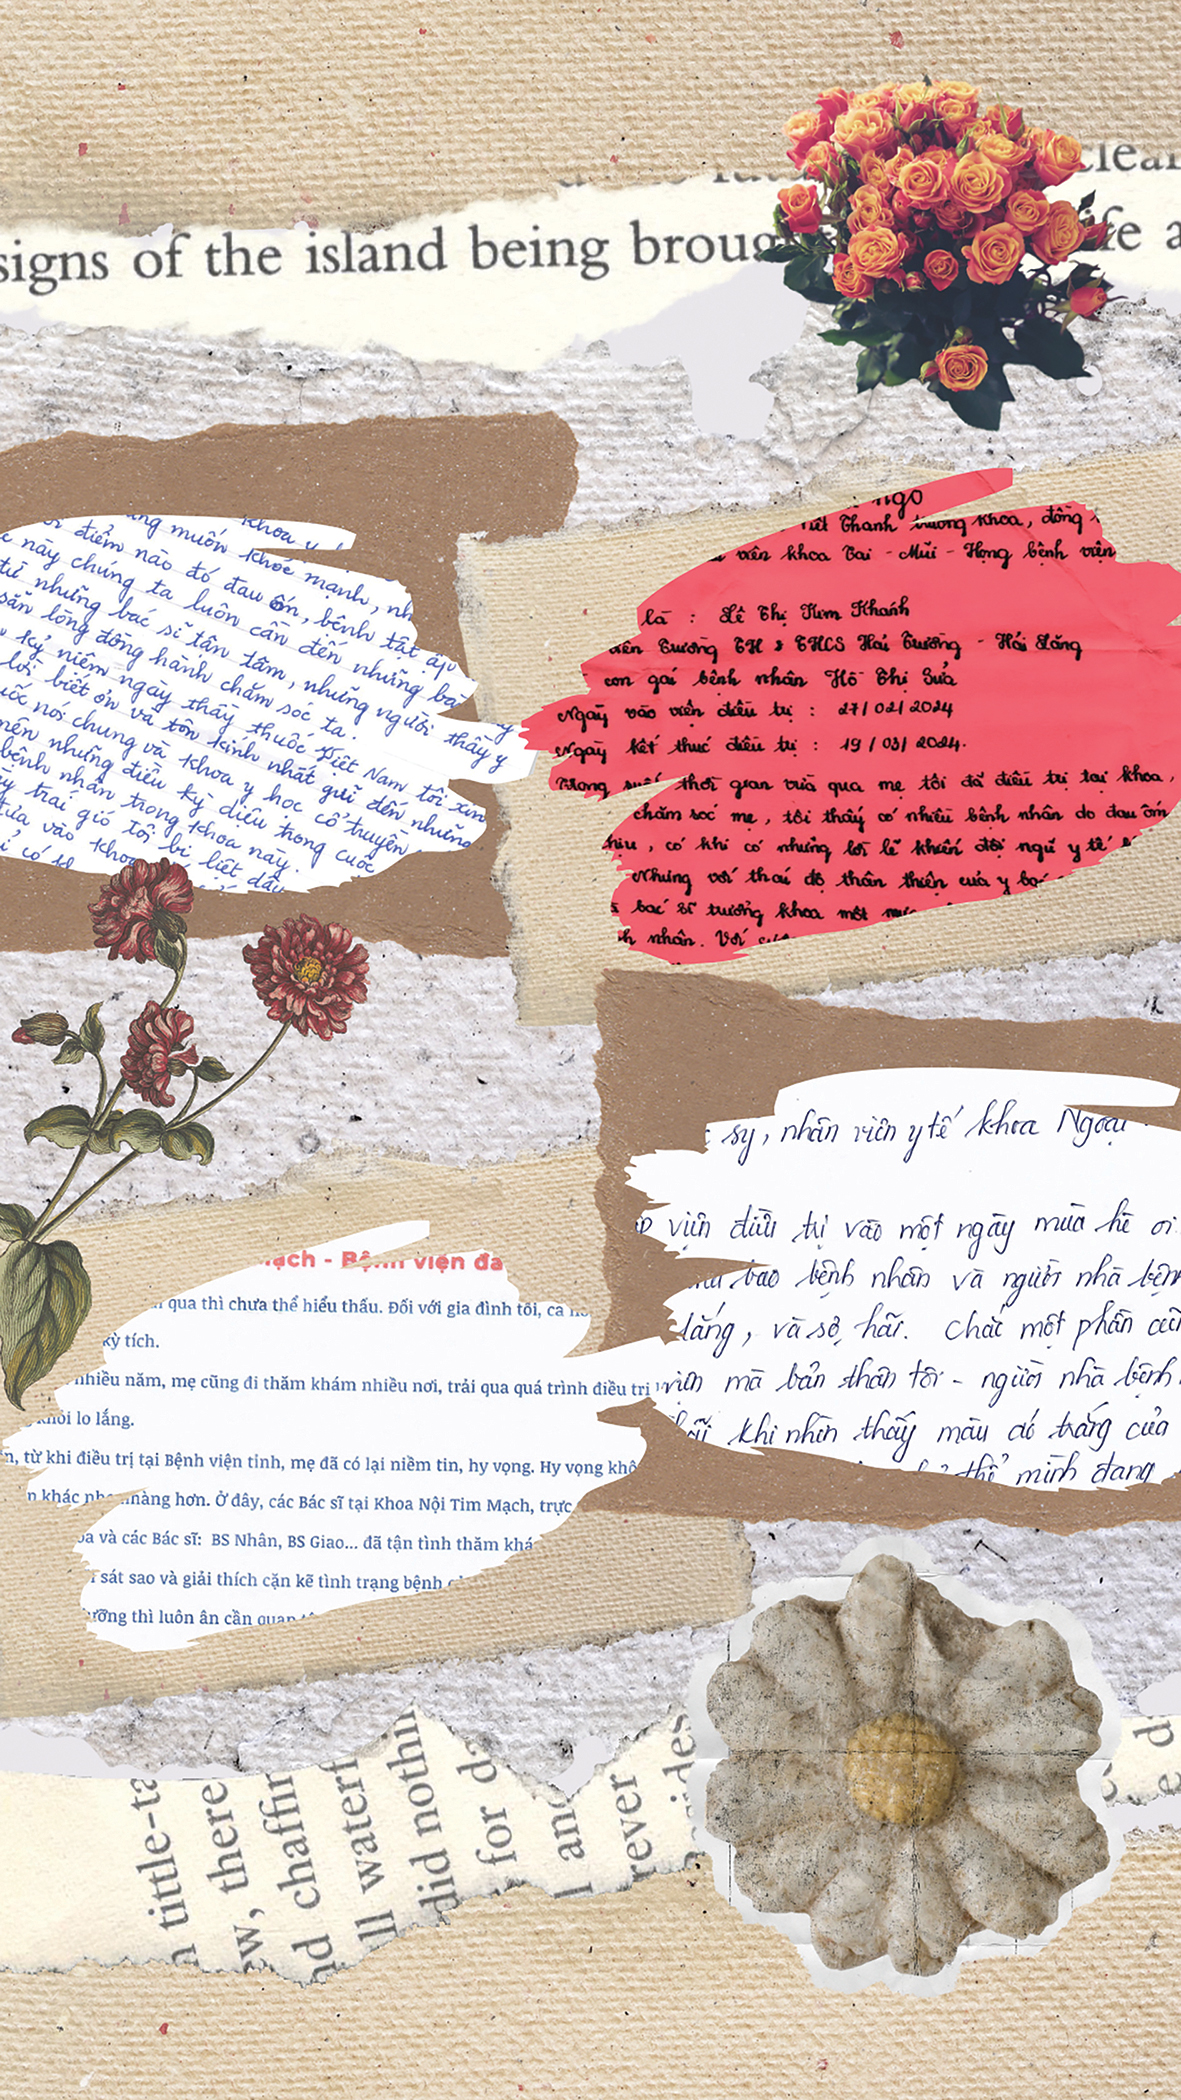 signs of the island being
khoa y
muốn khỏe mạnh,
điểm nào đó đau ốm, bệnh tật
này chúng ta luôn cần đến những
từ những bác sĩ tận tâm, những người thầy y
sẵn lòng đồng hành chăm sóc ta.
kỷ niệm ngày thầy thuốc Việt Nam tôi xin
lời biết ơn và tôn kính nhất gửi đến những
nói chung và khoa y học cổ truyền
nên những điều kỳ diệu trong cuộc
bệnh nhân trong khoa này.
trái gió tôi bị liệt dây
vào khoa
Thanh trưởng khoa, đồng
viên khoa Tai - Mũi - Họng bệnh viện
là : Lê Thị Kim Khánh
Trường TH & THCS Hải Trường - Hải Lăng
con gái bệnh nhân Hồ Thị Sửa
Ngày vào viện điều trị : 27/02/2024
Ngày kết thúc điều trị : 19/03/2024.
Trong suốt thời gian vừa qua mẹ tôi đã điều trị tại khoa,
chăm sóc mẹ, tôi thấy có nhiều bệnh nhân do đau ốm
có khi có những lời lẽ khiến đội ngũ y tế
Nhưng với thái độ thân thiện của y
bác sĩ trưởng khoa một
nhân. Với
sỹ, nhân viên y tế khoa Ngoại
viện điều trị vào một ngày mùa hè
bao bệnh nhân và người nhà bệnh
lắng, và sợ hãi. Chắc một phần
mà bản thân tôi - người nhà bệnh
khi nhìn thấy màu đỏ trắng của
thể mình đang
Mạch - Bệnh viện đa
qua thì chưa thể hiểu thấu. Đối với gia đình tôi, ca
kỳ tích.
nhiều năm, mẹ cũng đi thăm khám nhiều nơi, trải qua quá trình điều trị
khỏi lo lắng.
từ khi điều trị tại Bệnh viện tỉnh, mẹ đã có lại niềm tin, hy vọng. Hy vọng
khác nhẹ nhàng hơn. Ở đây, các Bác sĩ tại Khoa Nội Tim Mạch, trực
và các Bác sĩ: BS Nhân, BS Giao... đã tận tình thăm
sát sao và giải thích cặn kẽ tình trạng bệnh
thì luôn ân cần quan
there
waterf
did nothin
for